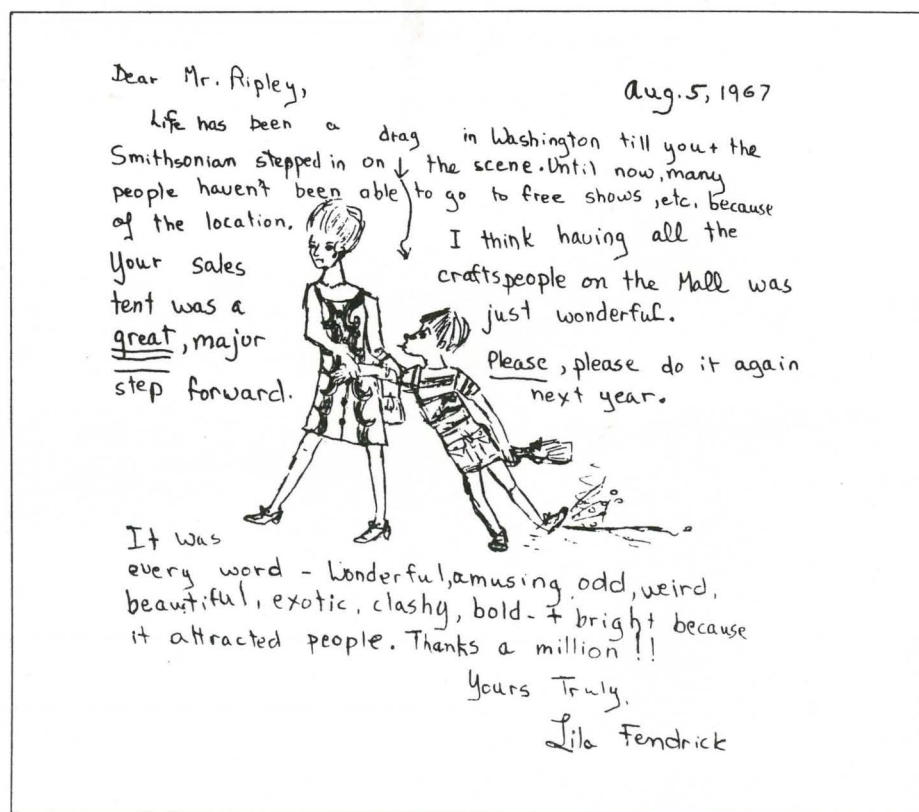 Dear Mr. Ripley,
Aug. 5, 1967
Life has been a drag in Washington till you + the
Smithsonian stepped in on the scene. Until now, many
people haven't been able to go to free shows, etc. because
of the location.
Your sales
tent was a
great, major
step forward.
I think having all the
craftspeople on the Mall was
just wonderful.
Please, please do it again
next year.
It was
every word - Wonderful, amusing, odd, weird,
beautiful, exotic, clashy, bold - + bright because
it attracted people. Thanks a million!!
Yours Truly,
Lila Fendrick